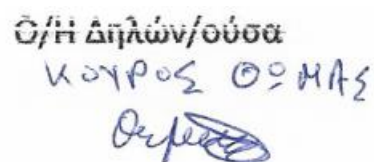 Ο/Η Δηλών/ούσα
ΚΟΥΡΟΣ ΘΩΜΑΣ